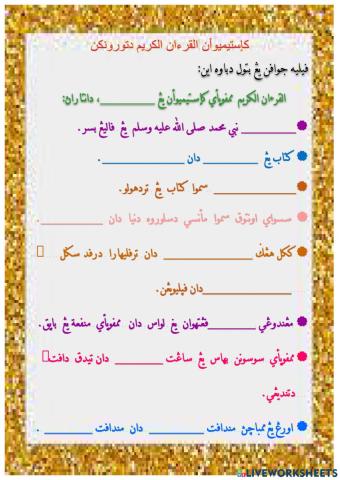 كإستيميوأن القرءان الكريم دتورونكن
فيليه جوافن يڠ بتول دباوه اين:
القرءان الكريم ممڤوياءي كإستيميوأن يڠ _________، دانتاراڽ:
_________ نبي محمد صلى الله عليه وسلم يڠ ڤاليڠ بسر.
كتاب يڠ _________ دان _____________.
_____________ سموا كتاب يڠ تردهولو.
سسواي اونتوق سموا مأنسي دسلوروه دنيا دان _________.
ككل هڠݢ _____________ دان ترڤليهارا درڤد سݢل
_____________دان ڤيليويڠن.
مڠندوڠي _______ڤڠتهوان يڠ لواس دان ممڤوياءي منفعة يڠ باڽق.
ممڤوياءي سوسونن بهاس يڠ ساڠت _______ دان تيدق داڤت
دتنديڠي.
اورڠ يڠ ممباچڽ منداڤت ________ دان منداڤت _______ .
LIVEWORKSHEETS